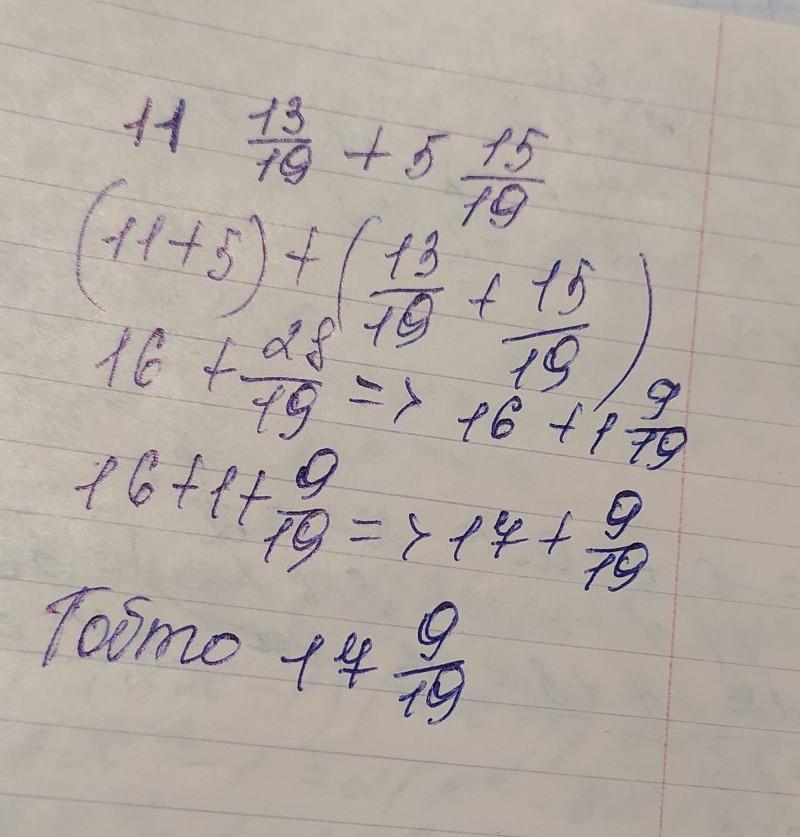 11 13/19 + 5 15/19
(11+5) + (13/19 + 15/19)
16 + 28/19 => 16 + 1 9/19
16+1+ 9/19 => 17 + 9/19
Тобто 17 9/19